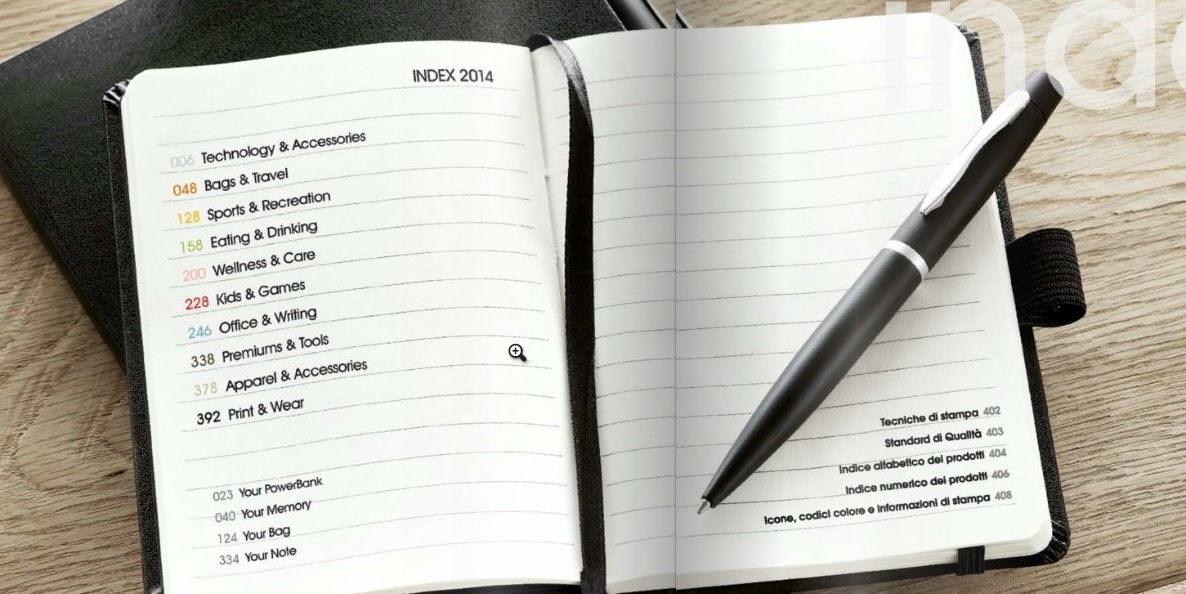 INDEX 2014
006 Technology & Accessories
048 Bags & Travel
128 Sports & Recreation
158 Eating & Drinking
200 Wellness & Care
228 Kids & Games
246 Office & Writing
338 Premiums & Tools
378 Apparel & Accessories
392 Print & Wear
023 Your PowerBank
040 Your Memory
124 Your Bag
334 Your Note
Tecniche di stampa 402
Standard di Qualità 403
Indice alfabetico dei prodotti 404
Indice numerico dei prodotti 406
Icone, codici colore e informazioni di stampa 408